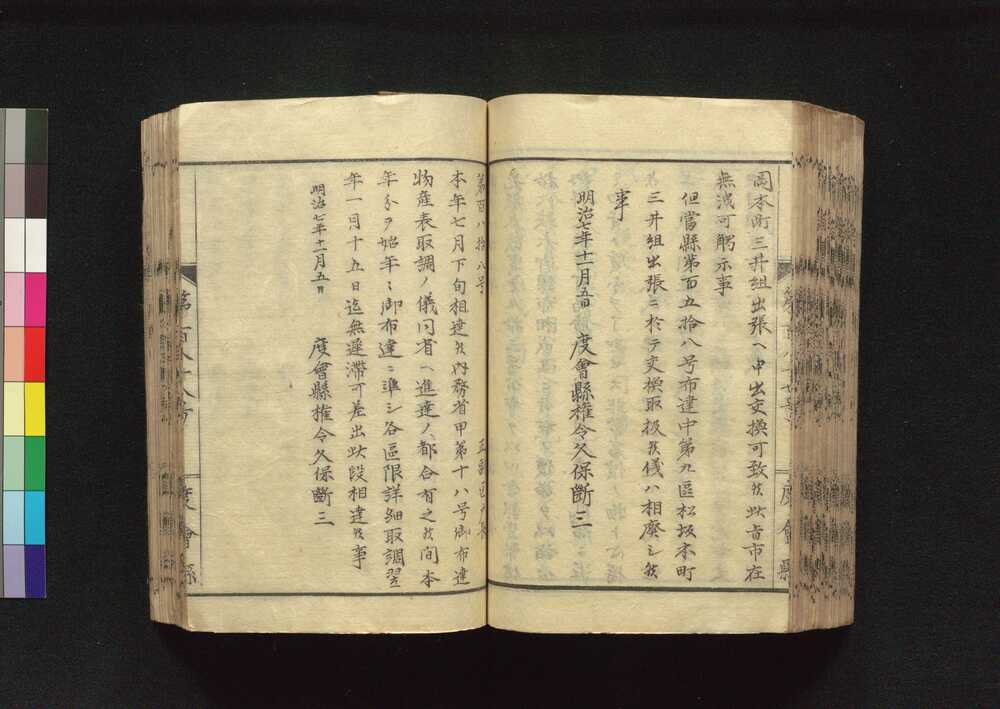 岡本町三井組出張ヘ申出交換可致候此旨市在
無洩可觸示事
但當縣第百五拾八号布達中第九區松坂本町
三井組出張ニ於テ交換取扱候儀ハ相廢シ候
事
明治七年十一月五日 度會縣權令久保斷三
第百八拾八号 正副區戸長
本年七月下旬相達候内務省甲第十八号御布達
物産表取調ノ儀同省ヘ進達ノ都合有之候間本
年分ヲ始年々御布達ニ準シ各區限詳細取調翌
年一月十五日迄無遲滯可差出此段相達候事
明治七年十一月五日 度會縣權令久保斷三
第百八十八号 度會縣